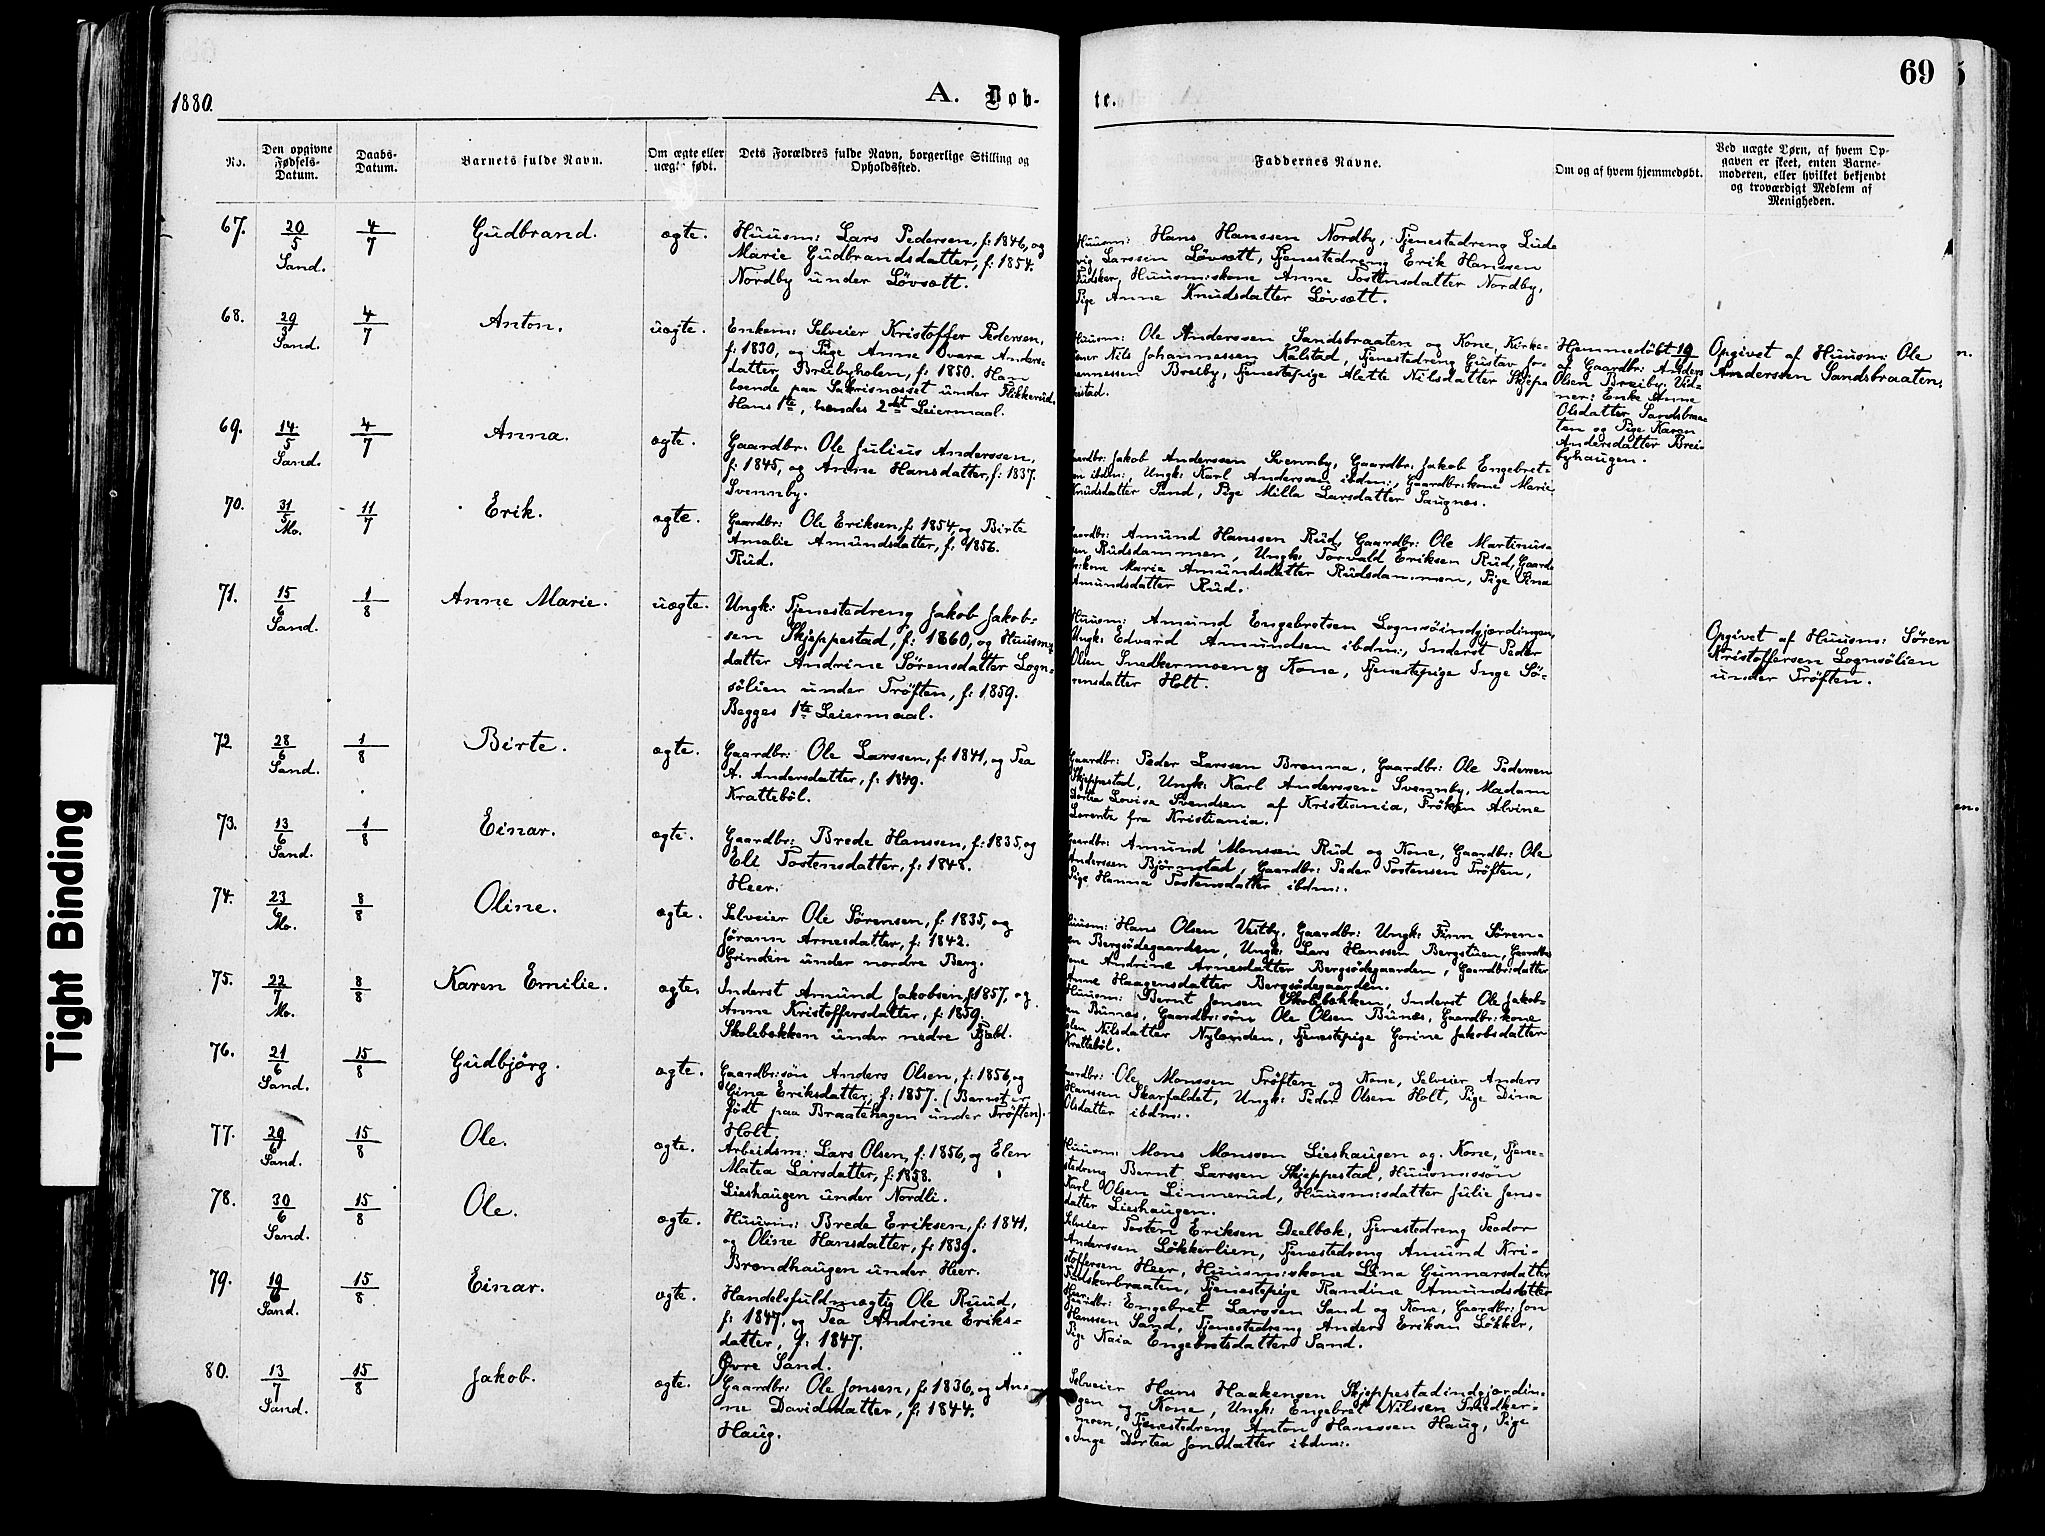 69
1880.
A. Døb-
te.
No.
Den opgivne
Fødsels-
Datum.
Daabs-
Datum.
Barnets fulde Navn.
Om ægte eller
uægte født.
Dets Forældres fulde Navn, borgerlige Stilling og
Opholdssted.
Faddernes Navne.
Om og af hvem hjemmedøbt.
Ved uægte Børn, af hvem Op-
gaven er skeet, enten Barne-
moderen, eller hvilket bekjendt
og troværdigt Medlem af
Menigheden.
67. 20/5 Sand. 4/7 Gudbrand. ægte.
Huusm: Lars Pedersen, f: 1846, og
Marie Gudbrandsdatter, f: 1854.
Nordby under Lövsætt.
Huusm: Hans Hanssen Nordby, Tjenestedreng Lude
vig Larssen Lövsætt, Tjenestedreng Erik Hanssen
Fudsker, Huusm:skone Anne Tostensdatter Nordby,
Pige Anne Knudsdatter Lövsætt.
68. 29/3 Sand. 4/7 Anton. uægte.
Enkem: Selveier Kristoffer Pedersen,
f: 1830, og Pige Anne Svara Anders-
datter Breibyholen, f: 1850. Han
boende paa Sakrisnæsset under Flikkerud.
Hans 1te, hendes 2det Leiermaal.
Huusm: Ole Anderssen Sandsbraaten og Kone, Kirke-
Nils Johannessen Kalstad, Tjenestedreng Gustav Jo-
hannessen Breiby, Tjenestepige Alette Nilsdatter Skjeppe
stad.
Hjemmedöbt 19
af Gaardbr: Anders
Olsen Breiby. Vid-
ner: Enke Anne
Olsdatter Sandsbraa-
ten og Pige Karen
Andersdatter Brei-
byhaugen.
Opgivet af Huusm: Ole
Anderssen Sandsbraaten.
69. 14/5 Sand. 4/7 Anna. ægte.
Gaardbr: Ole Julius Anderssen,
f: 1845, og Anne Hansdatter, f: 1837.
Svennby.
Gaardbr: Jakob Anderssen Svennby, Gaardbr: Jakob Engebret-
sen ibdm:, Ungk: Karl Anderssen ibdm:, Gaardbr:kone Marie
Knudsdatter Sand, Pige Milla Larsdatter Saugnæs.
70. 31/5 Mo. 11/7 Erik. ægte.
Gaardbr: Ole Eriksen, f: 1854, og Birte
Amalie Amundsdatter, f: 1856.
Rud.
Gaardbr: Amund Hanssen Rud, Gaardbr: Ole Martinus-
sen Rudsdammen, Ungk: Torvald Eriksen Rud, Gaard-
br:kone Marie Amundsdatter Rudsdammen, Pige Lina
Amundsdatter Rud.
71. 15/6 Sand. 1/8 Anne Marie. uægte.
Ungk: Tjenestedreng Jakob Jakob-
sen Skjeppestad, f: 1860, og Huusm:
datter Andrine Sörensdatter Logn-
sölien under Tröften, f: 1859.
Begges 1te Leiermaal.
Huusm: Amund Engebretsen Lognsöindgjærdingen,
Ungk: Edvard Amundsen ibdm:, Inderst Peder
Olsen Snedkermoen og Kone, Tjenestepige Inge Sö-
rensdatter Holt.
Opgivet af Huusm: Sören
Kristoffersen Lognsölien
under Tröften.
72 28/6 Sand. 1/8 Birte. ægte.
Gaardbr: Ole Larssen, f: 1841, og Tea
A. Andersdatter, f: 1849.
Kratteböl.
Gaardbr: Peder Larssen Brenna, Gaardbr: Ole Pedersen
Skjeppestad, Ungk: Karl Anderssen Svennby, Madam
Dortea Lovisa Svendsen af Kristiania, Fröken Alvine
Lorentz fra Kristiania.
73. 13/6 Sand. 1/8 Einar. ægte.
Gaardbr: Brede Hanssen, f: 1835, og
Eli Tostensdatter, f: 1848.
Heer.
Gaardbr: Amund Monssen Rud og Kone, Gaardbr: Ole
Anderssen Björnstad, Gaardbr: Peder Tostensen Tröften,
Pige Hanna Tostensdatter ibdm:.
74. 23/6 Mo. 8/8 Oline. ægte.
Selveier Ole Sörensen, f: 1835, og
Jörann Arnesdatter, f: 1842.
Grinden under nordre Berg.
Huusm: Hans Olsen Vestby, Gaardbr: Ungk: Finn Sören-
sen Bergsödegaarden, Ungk: Lars Hanssen Bergstuen, Gaardbr:
kone Andrine Arnesdatter Bergsödegaarden, Gaardbr:datter
Anne Haagensdatter Bergsödegaarden.
75. 22/7 Mo. 8/8 Karen Emilie. ægte.
Inderst Amund Jakobsen, f: 1857, og
Anne Kristoffersdatter, f: 1859.
Skolebækken under nedre Fjeld.
Huusm: Bernt Jensen Skolebækken, Inderst Ole Jakob-
sen Bunæs, Gaardbr:sön Ole Olsen Bunæs, Gaardbr:kone
Nilsdatter Nylænden, Tjenestepige Gorine Jakobsdatter
Kratteböl.
76. 21/6 Sand. 15/8 Gudbjörg. ægte.
Gaardbr:sön Anders Olsen, f: 1856, og
Gina Eriksdatter, f: 1857. (Barnet er
födt paa Braatehagen under Tröften).
Holt
Gaardbr: Ole Monssen Tröften og Kone, Selveier Anders
Hanssen Skarfaldet, Ungk: Peder Olsen Holt, Pige Dina
Olsdatter ibdm:.
77. 29/6 Sand. 15/8 Ole. ægte.
Arbeidsm: Lars Olsen, f: 1856, og Elen
Matea Larsdatter, f: 1858.
Lieshaugen under Nordli.
Huusm: Mons Monssen Lieshaugen og Kone, Tjene-
stedreng Bernt Larssen Skjeppestad, Huusm:ssön
Karl Olsen Linnerud, Huusm:sdatter Julie Jens-
datter Lieshaugen.
78. 30/6 Sand. 15/8 Ole. ægte.
Huusm: Brede Eriksen, f: 1841,
og Oline Hansdatter, f: 1839.
Brændhaugen under Heer.
Selveier Tosten Eriksen Deelbæk, Tjenestedreng Teodor
Anderssen Lökkerlien, Tjenestedreng Amund Kri-
stoffersen Heer, Huusm:skone Lina Gunnarsdatter
Fudskerbraaten, Tjenestepige Randine Amundsdatter
Heer.
79. 19/6 Sand. 15/8 Einar. ægte.
Handelsfuldmægtig Ole Ruud,
f: 1847, og Tea Andrine Eriks-
datter, f: 1847.
Øvre Sand.
Gaardbr: Engebret Larssen Sand og Kone, Gaardbr: Jon
Hanssen Sand, Tjenestedreng Anders Eriksen Lökker,
Pige Kaia Engebretsdatter Sand.
80. 13/7 Sand. 15/8 Jakob. ægte.
Gaardbr: Ole Jonsen, f: 1836, og An-
ne Davidsdatter, f: 1844.
Haug.
Selveier Hans Haakensen Skjeppestadindgjærdin-
gen og Kone, Ungk: Engebret Nilssen Snedker-
moen, Tjenestedreng Anton Hanssen Haug, Pige
Inge Dortea Jonsdatter ibdm:.
Tight Binding